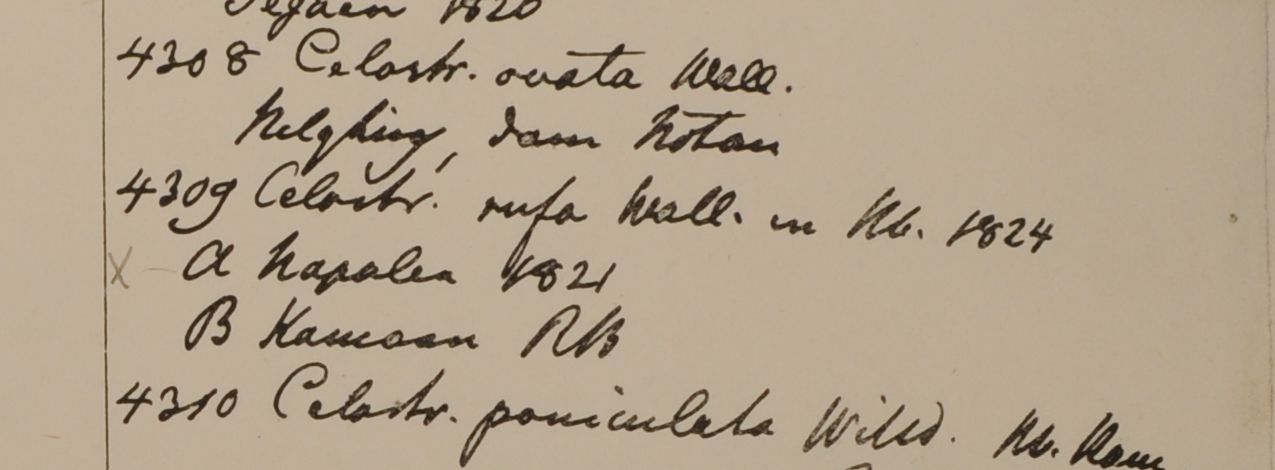 1820
4308 Celastr. ovata Wall.
4309 Celastr. rufa Wall. in Hb. 1824
X A Napalea 1821
B Kamaon RB
4310 Celastr. paniculata Willd. Hb.